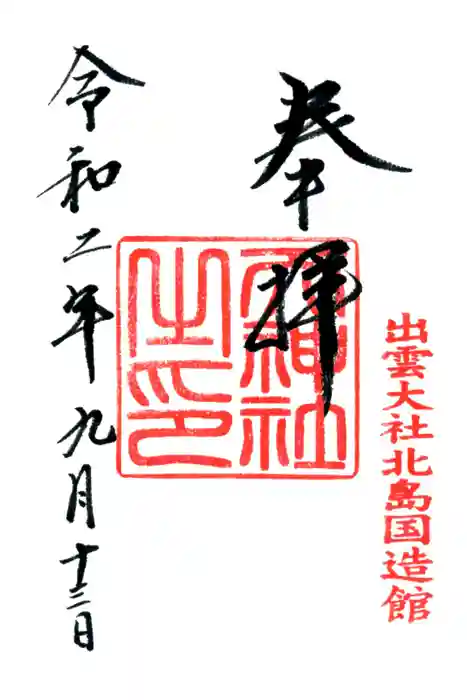 奉拝
出雲大社北島国造館
令和二年九月十三日
神社
之印